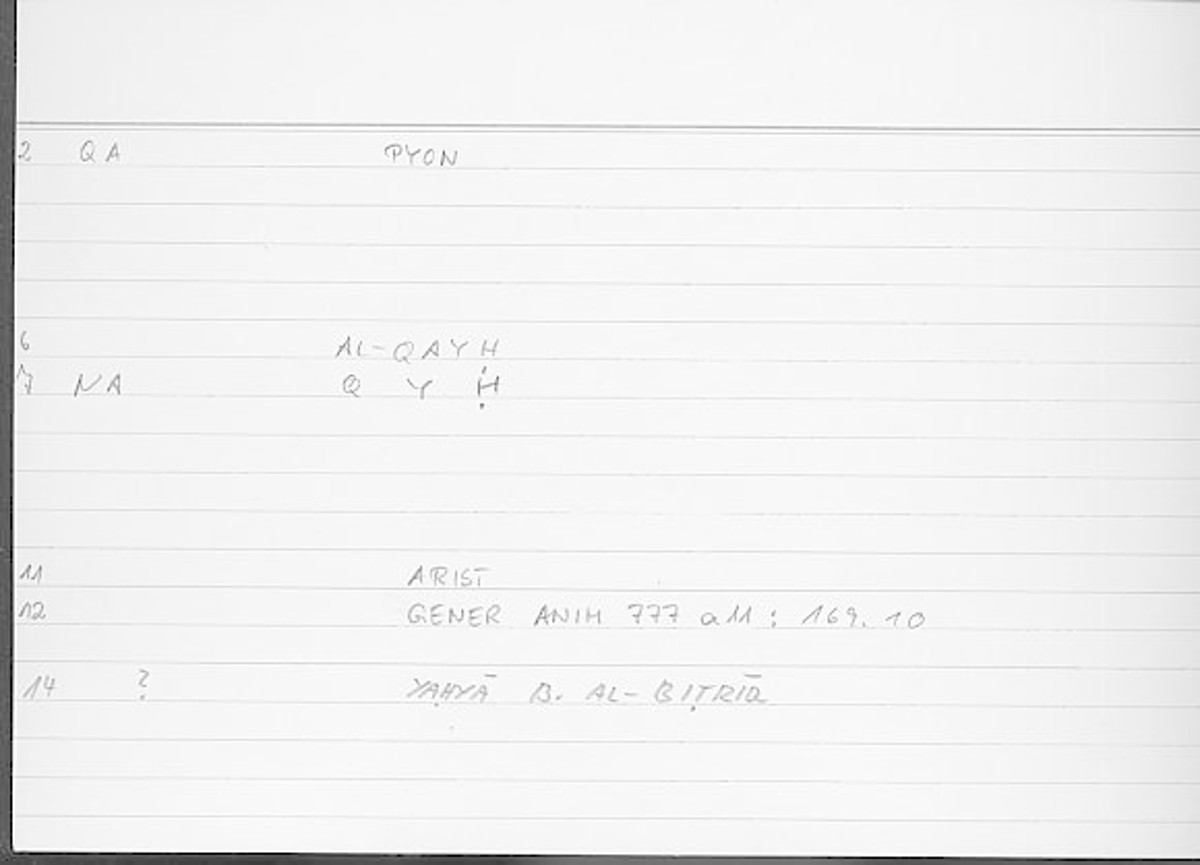 2 QA PYON
6 AL-QAYH
7 NA Q Y Ḥ
11 ARIST
12 GENER ANIM 777 a 11 : 169. 10
14 ? YAḤYĀ B. AL-BIṬRĪQ